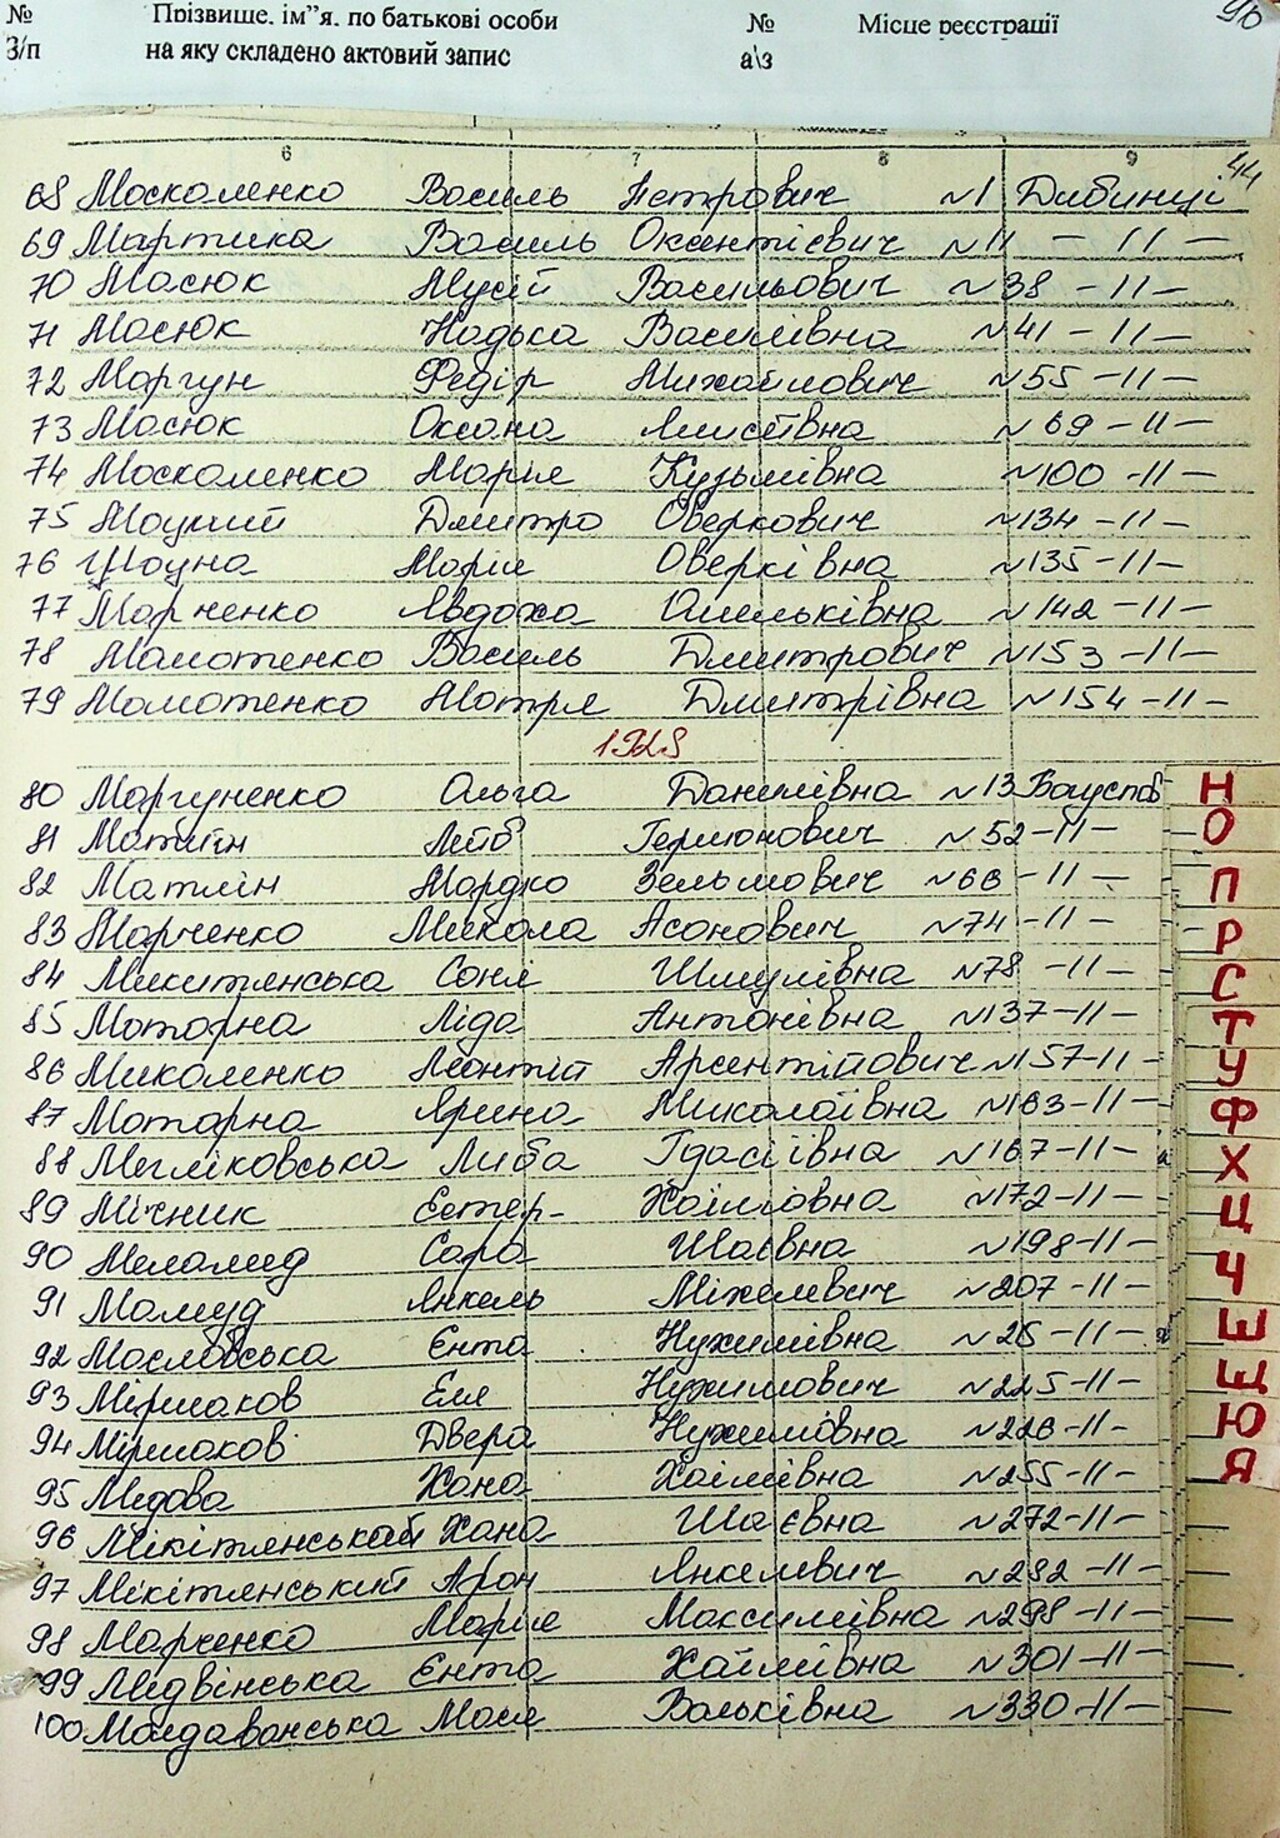 № Прізвище, ім"я, по батькові особи № Місце реєстрації 96
З/п на яку складено актовий запис а\з
6 7 8 9 44
68 Москаленко Василь Петрович №1 Дибинці
69 Мартика Василь Оксентієвич №11 -11-
70 Масюк Мусій Васильович №38 -11-
71 Масюк Надька Василівна №41 -11-
72 Моргун Федір Михайлович №55 -11-
73 Масюк Оксана №69 -11-
74 Москаленко Марія Кузьмівна №100 -11-
75 Моцний Дмитро Оверкович №134 -11-
76 Моцна Марія Оверківна №135 -11-
77 Марченко Явдоха Омельківна №142 -11-
78 Мамотенко Василь Дмитрович №153 -11-
79 Мамотенко Мотря Дмитрівна №154 -11-
1928
80 Моргуненко Ольга Данилівна №13 Богуслав
81 Матлін Лейб №52 -11-
82 Матлін Мордко Зельмович №66 -11-
83 Марченко Микола Асонович №74 -11-
84 Микитянська Соня Шмулівна №78 -11-
85 Моторна Ліда Антонівна №137 -11-
86 Миколенко Леонтій Арсентійович №157 -11-
87 Моторна Ярина Миколаївна №163 -11-
88 Мегликовська Либа №167 -11-
89 Мічник Естер- Хаімовна №172 -11-
90 Меламед Сара Шаєвна №198 -11-
91 Мамуд Янкель Міхелевич №207 -11-
92 Масловська Єнта Нухимівна -11-
93 Мірмаков Еля Нухимович №225 -11-
94 Мірмаков Двера Нухимовна №226 -11-
95 Медова Хана Хаімівна №255 -11-
96 Мікітянський Хана Шаєвна №272 -11-
97 Мікітянський Арон Янкелевич №282 -11-
98 Марченко Марія Максимівна №298 -11-
99 Медвінська Єнта Хаїмівна №301 -11-
100 Молдаванська Мася Вольківна №330 -11-
Н
О
П
Р
С
Т
У
Ф
Х
Ц
Ч
Ш
Щ
Ю
Я